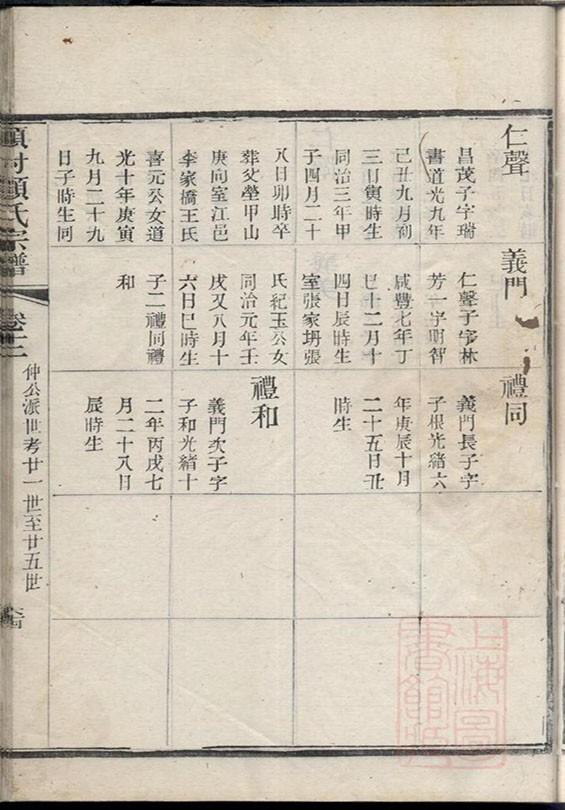 仁聲
昌茂子字瑞
書道光九年
己丑九月初
三日寅時生
同治三年甲
子四月二十
八日卯時卒
葬父塋甲山
庚向室江邑
李家橋王氏
喜元公女道
光十年庚寅
九月二十九
日子時生同
義門
仁聲子字林
芳一字明智
咸豐七年丁
巳十二月十
四日辰時生
室張家坍張
氏紀玉公女
同治元年壬
戌又八月十
六日巳時生
子二禮同禮
和
禮同
義門長子字
子根光緒六
年庚辰十月
二十五日丑
時生
禮和
義門次子字
子和光緒十
二年丙戌七
月二十八日
辰時生
顧氏宗譜
卷十二
仲公派世考廿一世至廿五世
上海圖
書館藏